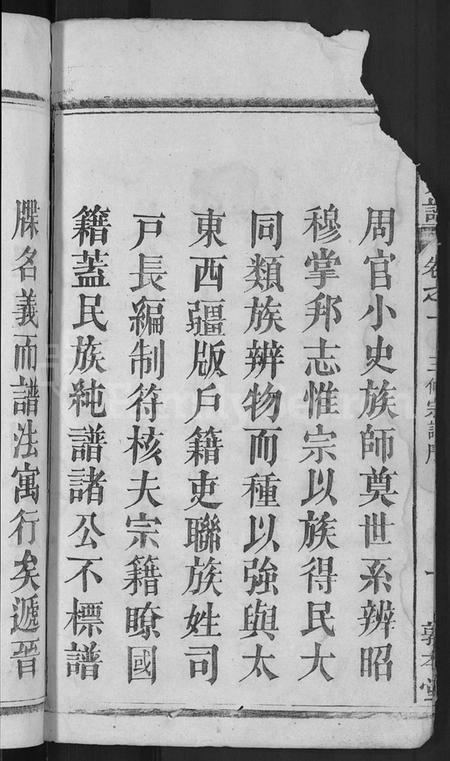 周官小史族師奠世系辨昭
穆掌邦志惟宗以族得民大
同類族辨物而種以強與太
東西疆版戶籍吏聯族姓司
戸長編制符核夫宗籍瞭國
籍蓋民族純譜諸公不標譜
牒名義而譜法寓行矣遞晉
譜 卷之一 三修宗譜序 一